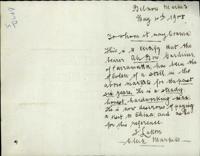 Belmore Markets
May 10th 1908
To whom it may concern
This is to certify that the
bearer Ah Bow Gardener
of Parramatta has been the
holder of a stall in the
above markets for the past
six years. He is a steady
honest hardworking man.
He is now desirous of paying
a visit to China and asks
for this reference
Clerk Markets